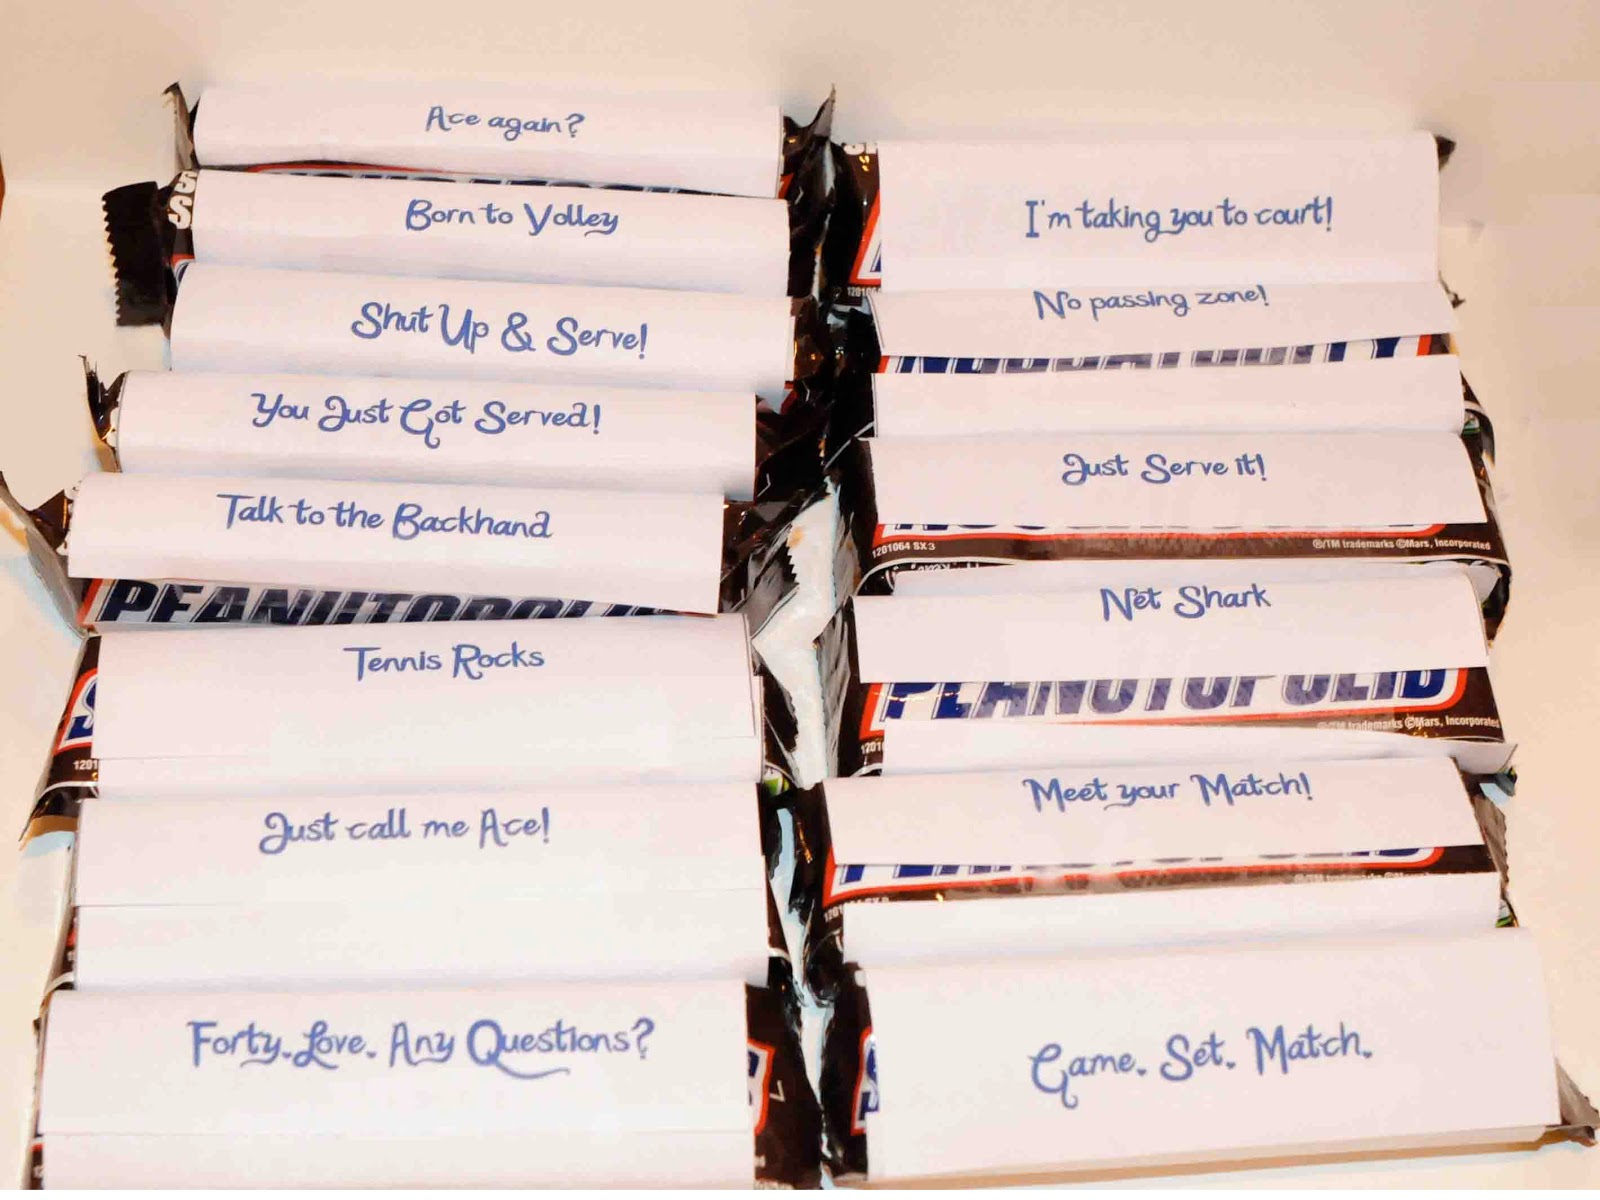 Ace again?
Born to Volley
Shut Up & Serve!
You Just Got Served!
Talk to the Backhand
PEANUTOPOLIS
Tennis Rocks
1201
Just call me Ace!
Forty. Love. Any Questions?
I'm taking you to court!
No passing zone!
Just Serve it!
1201064 SX 3
®/TM trademarks ©Mars, Incorporated
Net Shark
PEANUTOPOLIS
trademarks ©Mars, Incorporated
1201
Meet your Match!
Game. Set. Match.